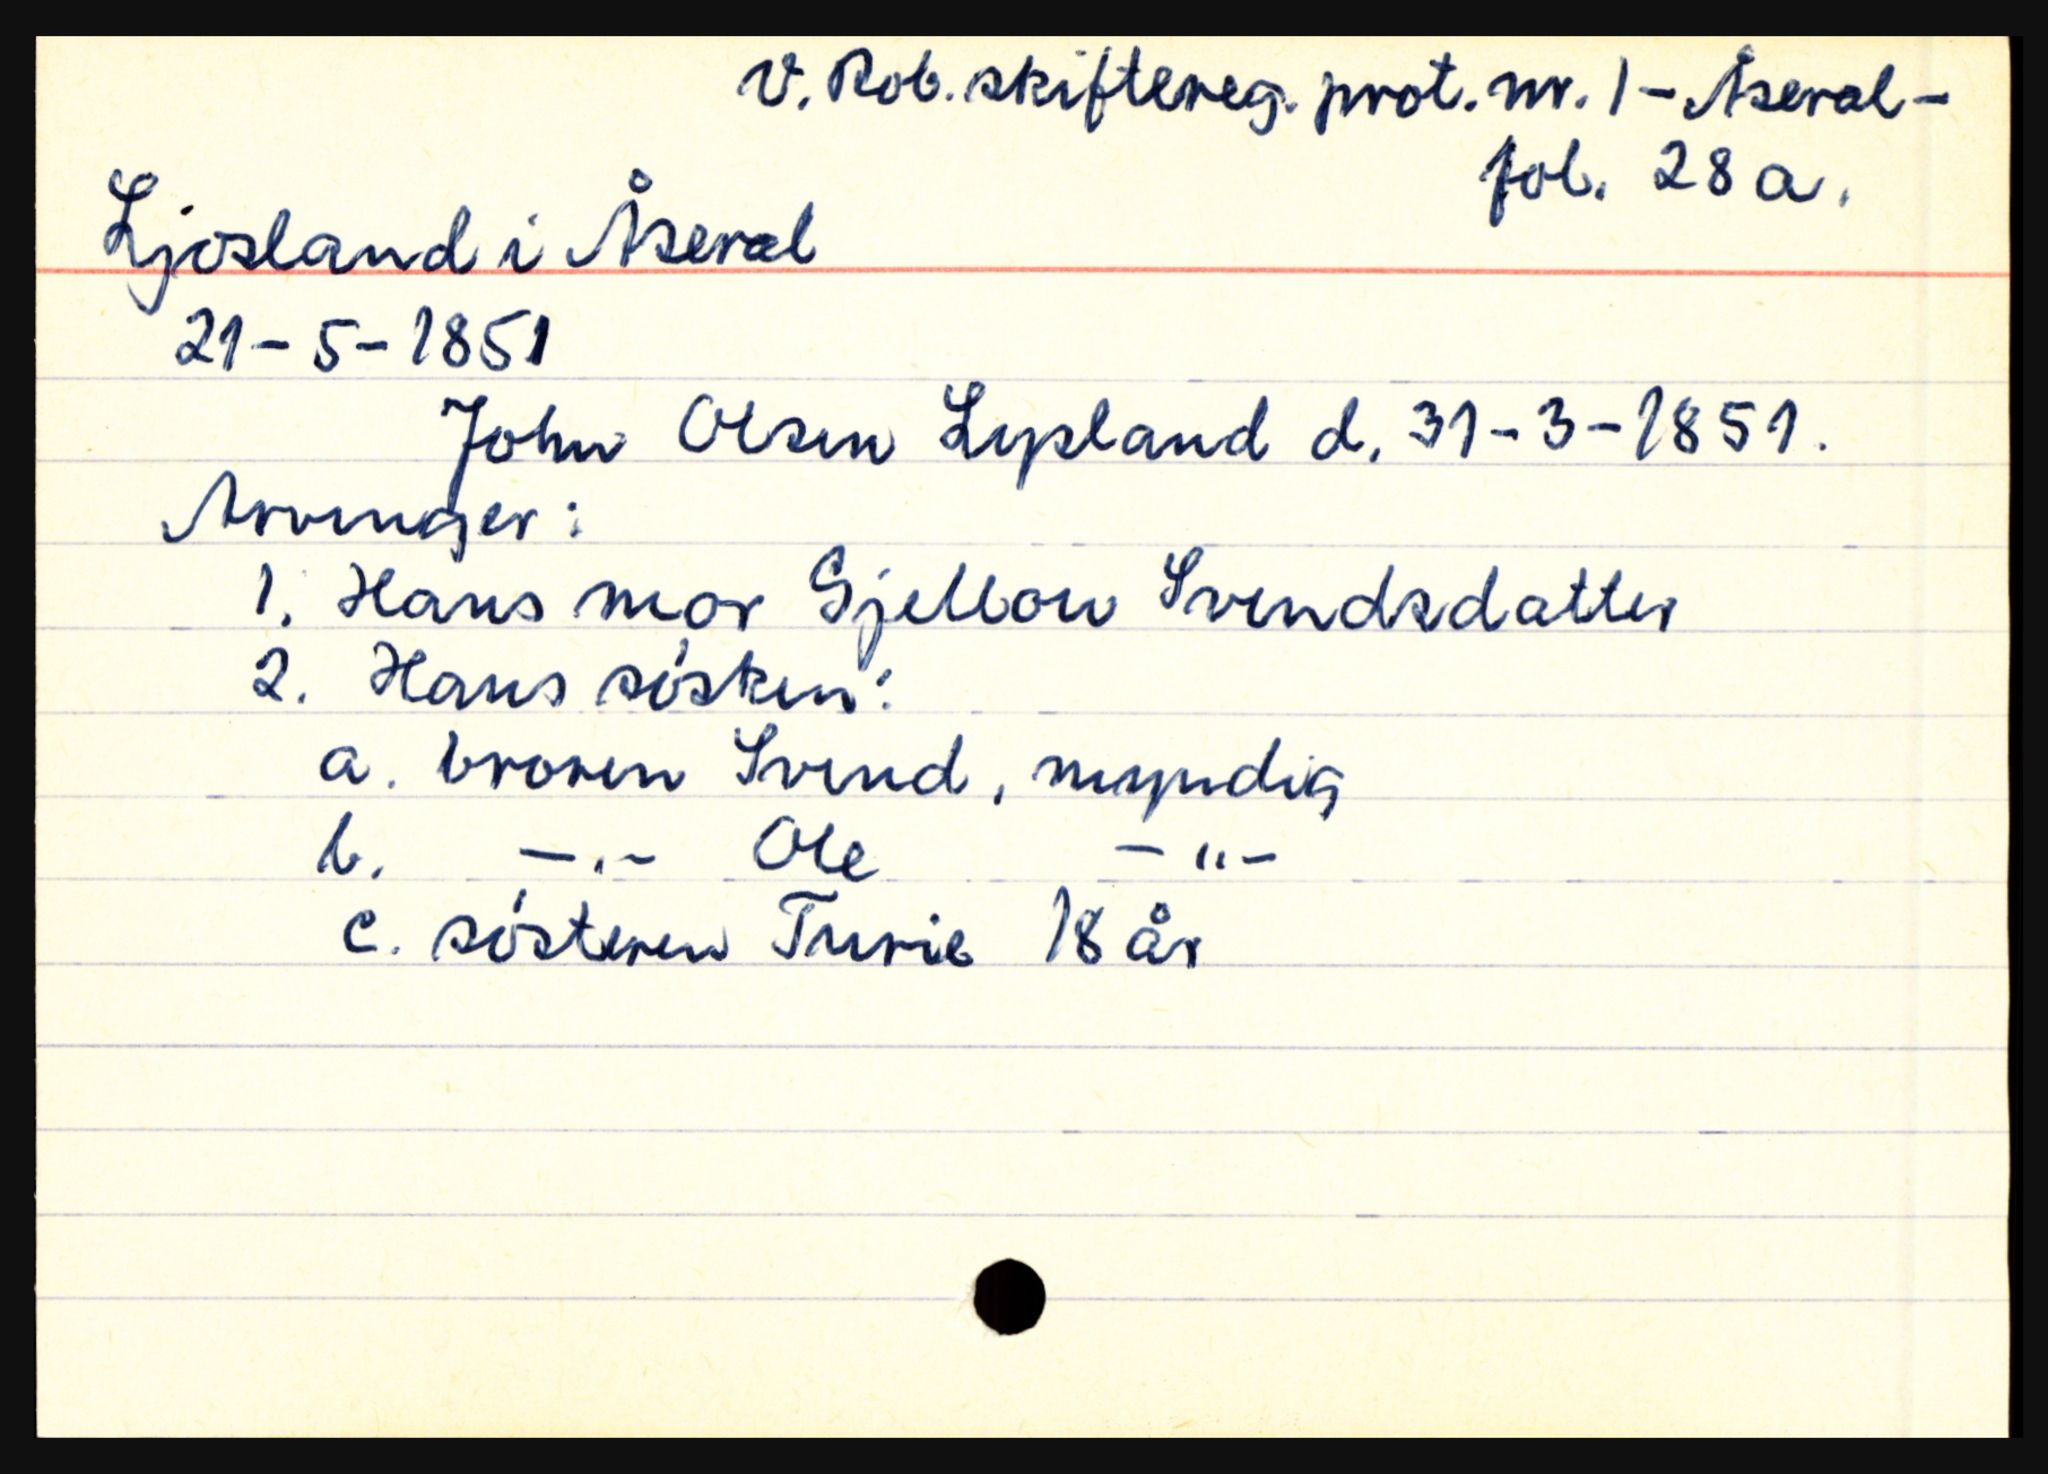 V. Rob. skiftereg. prot. nr. 1 - Åseral -
fol. 28 a.
Ljosland i Åseral
21 - 5 - 1851
John Olsen Lysland d. 31 - 3 - 1851.
Arvinger:
1. Hans mor Gjellou Svendsdatter
2. Hans sósken:
a. broren Svend, myndig
b. -„- Ole -„-
c. sósteren Turie 18 år